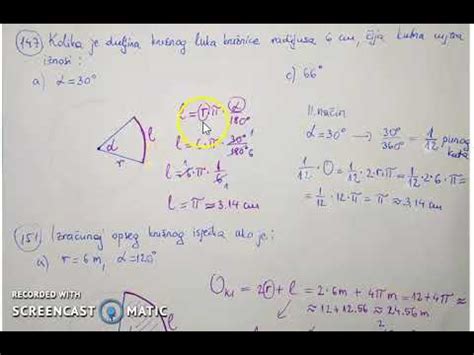 147. Kolika je duljina kružnog luka kružnice radijusa 6 cm, čija kutna mjera
iznosi:
a) α = 30°
c) 66°
α
r
l
l = r π · α/180°
l = 6 · π · 30°/180°
l = 6 · π · 1/6
l = π ≈ 3.14 cm
II. način
α = 30° → 30°/360° = 1/12 punog
kuta
1/12 · O = 1/12 · 2 · r · π = 1/12 · 2 · 6 · π
= 1/12 · 12 · π = π ≈ 3.14 cm
151. Izračunaj opseg kružnog isječka ako je:
a) r = 6 m, α = 120°
O = 2r + l = 2 · 6m + 4πm = 12 + 4π
≈ 12 + 12.56 ≈ 24.56 m
RECORDED WITH
SCREENCAST O MATIC